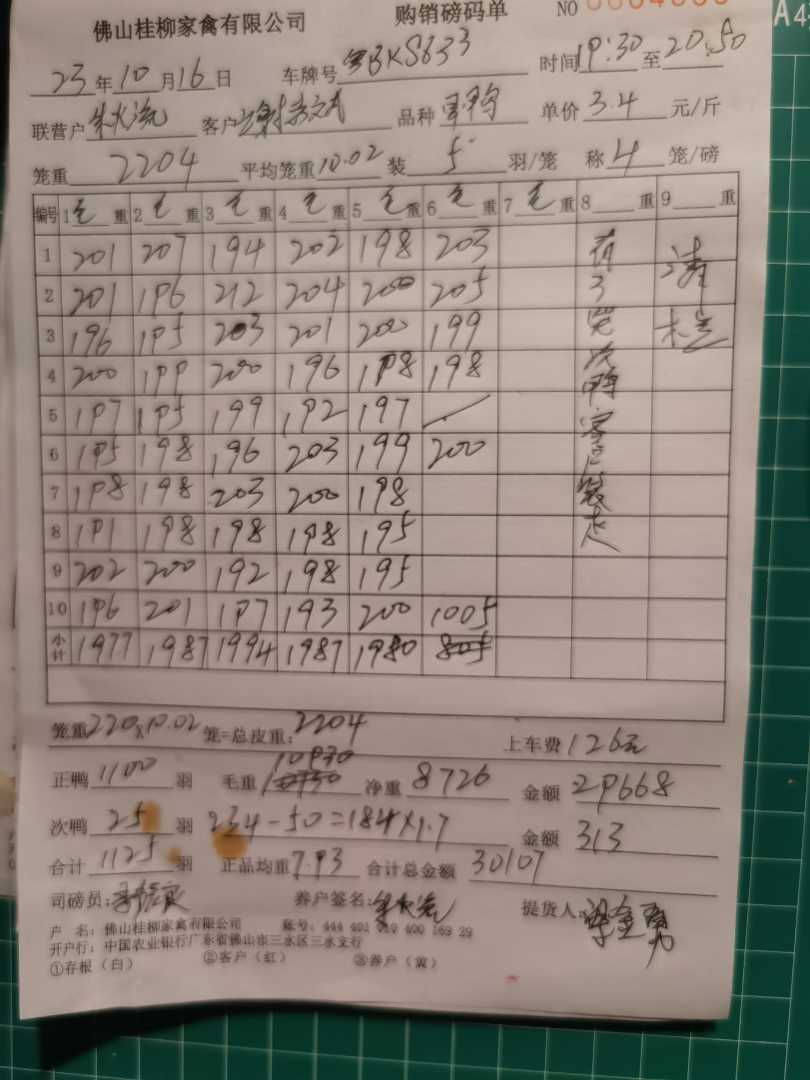 佛山桂柳家禽有限公司 购销磅码单 NO
A4
23年10月16日 车牌号 粤BKS633 时间19:30至20:50
联营户 客户 品种 单价3.4元/斤
笼重2204 平均笼重10.02 装5羽/笼 称4笼/磅
编号 1毛重 2毛重 3毛重 4毛重 5毛重 6毛重 7毛重 8重 9重
1 201 207 194 202 198 203
2 201 196 212 204 200 205
3 196 195 203 201 200 199
4 200 199 200 196 198 198
5 197 195 199 192 197
6 195 198 196 203 199 200
7 198 198 203 200 198
8 191 198 198 198 195
9 202 200 192 198 195
10 196 201 197 193 200 1005
小计 1977 1987 1994 1987 1980
有了完次鸭客已装走
清楼
笼重220×10.02 笼=总皮重:2204 上车费126元
正鸭1100羽 毛重10930 净重8726 金额29668
次鸭25羽 234-50=184×1.7 金额313
合计1125羽 正品均重7.93 合计总金额30107
司磅员: 养户签名: 提货人:
户 名: 佛山桂柳家禽有限公司 账号: 444 401 010 400 169 29
开户行: 中国农业银行广东省佛山市三水区三水支行
①存根(白) ②客户(红) ③养户(黄)